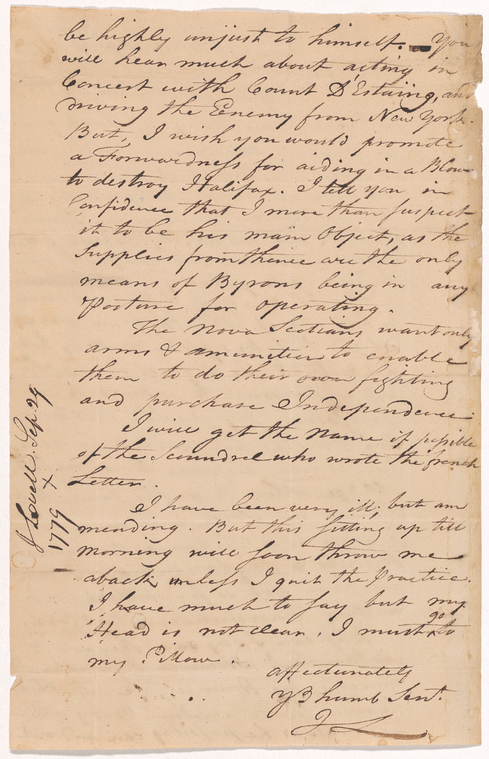 be highly unjust to himself. — You
will hear much about acting in
Concert with Count D'Estaing, and
driving the Enemy from New York.
But, I wish you would promote
a Forwardness for aiding in a Blow
to destroy Halifax. I tell you in
Confidence that I more than suspect
it to be his main Object, as the
Supplies from thence are the only
means of Byrons being in any
Posture for operating.
The Nova Scotians want only
arms & amunition to enable
them to do their own fighting
and purchase Independence.
I will get the Name if possible
of the Scoundrel who wrote the french
Letter.
I have been very ill; but am
mending. But this sitting up till
morning will soon throw me
aback unless I quit the Practice.
I have much to say but my
Head is not clear. I must go to
my Pillow.
affectionately
Yr humb Servt.
J L
J Lovell Sep. 29
1779